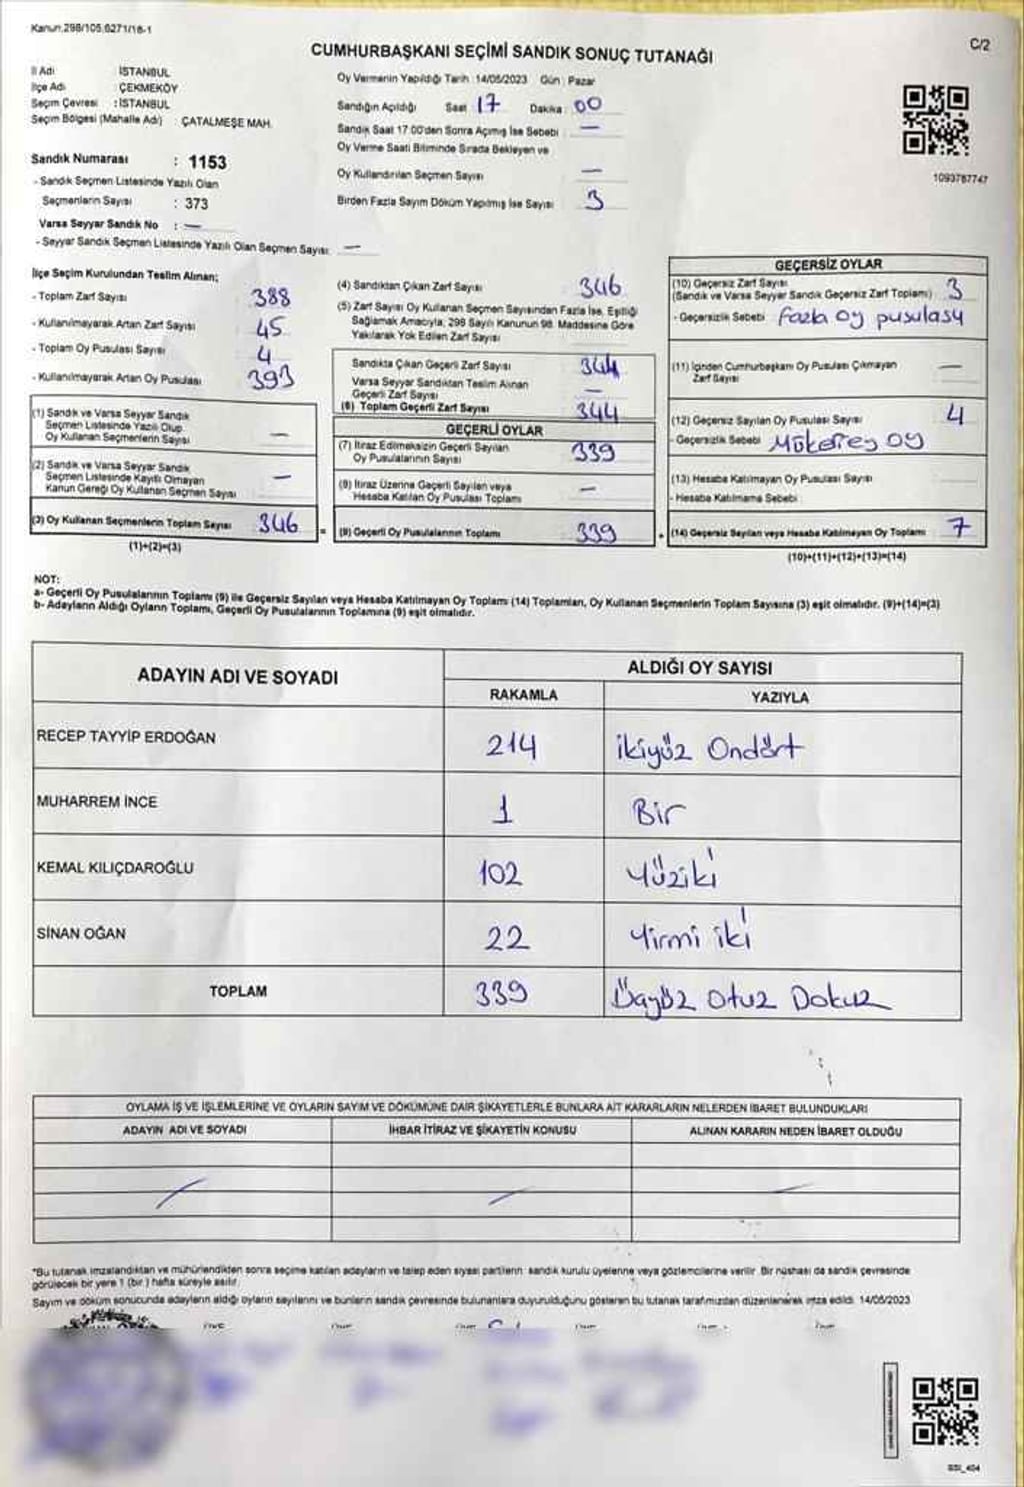 Kanun.298/105,6271/18-1
C/2
CUMHURBAŞKANI SEÇİMİ SANDIK SONUÇ TUTANAĞI
İl Adı : İSTANBUL
İlçe Adı : ÇEKMEKÖY
Seçim Çevresi : İSTANBUL
Seçim Bölgesi (Mahalle Adı) : ÇATALMEŞE MAH.
Sandık Numarası : 1153
- Sandık Seçmen Listesinde Yazılı Olan
Seçmenlerin Sayısı : 373
Varsa Seyyar Sandık No : —
- Seyyar Sandık Seçmen Listesinde Yazılı Olan Seçmen Sayısı: —
Oy Vermenin Yapıldığı Tarih :14/05/2023 Gün : Pazar
Sandığın Açıldığı Saat 17 Dakika : 00
Sandık Saat 17.00'den Sonra Açılmış İse Sebebi : —
Oy Verme Saati Bitiminde Sırada Bekleyen ve
Oy Kullandırılan Seçmen Sayısı —
Birden Fazla Sayım Döküm Yapılmış İse Sayısı : 3
1093787747
İlçe Seçim Kurulundan Teslim Alınan;
- Toplam Zarf Sayısı 388
- Kullanılmayarak Artan Zarf Sayısı 45
- Toplam Oy Pusulası Sayısı 4
- Kullanılmayarak Artan Oy Pusulası 393
(1) Sandık ve Varsa Seyyar Sandık
Seçmen Listesinde Yazılı Olup
Oy Kullanan Seçmenlerin Sayısı —
(2) Sandık ve Varsa Seyyar Sandık
Seçmen Listesinde Kayıtlı Olmayan
Kanun Gereği Oy Kullanan Seçmen Sayısı —
(3) Oy Kullanan Seçmenlerin Toplam Sayısı 346 =
(1)+(2)=(3)
(4) Sandıktan Çıkan Zarf Sayısı 346
(5) Zarf Sayısı Oy Kullanan Seçmen Sayısından Fazla İse, Eşitliği
Sağlamak Amacıyla, 298 Sayılı Kanunun 98. Maddesine Göre
Yakılarak Yok Edilen Zarf Sayısı
Sandıkta Çıkan Geçerli Zarf Sayısı 344
Varsa Seyyar Sandıktan Teslim Alınan
Geçerli Zarf Sayısı —
(6) Toplam Geçerli Zarf Sayısı 344
GEÇERLİ OYLAR
(7) İtiraz Edilmeksizin Geçerli Sayılan
Oy Pusulalarının Sayısı 339
(8) İtiraz Üzerine Geçerli Sayılan veya
Hesaba Katılan Oy Pusulası Toplamı —
(9) Geçerli Oy Pusulalarının Toplamı 339 +
GEÇERSİZ OYLAR
(10) Geçersiz Zarf Sayısı
(Sandık ve Varsa Seyyar Sandık Geçersiz Zarf Toplamı) 3
- Geçersizlik Sebebi Fazla oy pusulası
(11) İçinden Cumhurbaşkanı Oy Pusulası Çıkmayan
Zarf Sayısı —
(12) Geçersiz Sayılan Oy Pusulası Sayısı 4
- Geçersizlik Sebebi Mükerrer oy
(13) Hesaba Katılmayan Oy Pusulası Sayısı
- Hesaba Katılmama Sebebi
(14) Geçersiz Sayılan veya Hesaba Katılmayan Oy Toplamı 7
(10)+(11)+(12)+(13)=(14)
NOT:
a- Geçerli Oy Pusulalarının Toplamı (9) ile Geçersiz Sayılan veya Hesaba Katılmayan Oy Toplamı (14) Toplamları, Oy Kullanan Seçmenlerin Toplam Sayısına (3) eşit olmalıdır. (9)+(14)=(3)
b- Adayların Aldığı Oyların Toplamı, Geçerli Oy Pusulalarının Toplamına (9) eşit olmalıdır.
ADAYIN ADI VE SOYADI ALDIĞI OY SAYISI
RAKAMLA YAZIYLA
RECEP TAYYİP ERDOĞAN 214 ikiyüz Ondört
MUHARREM İNCE 1 Bir
KEMAL KILIÇDAROĞLU 102 Yüziki
SİNAN OĞAN 22 Yirmi iki
TOPLAM 339 Üçyüz Otuz Dokuz
OYLAMA İŞ VE İŞLEMLERİNE VE OYLARIN SAYIM VE DÖKÜMÜNE DAİR ŞİKAYETLERLE BUNLARA AİT KARARLARIN NELERDEN İBARET BULUNDUKLARI
ADAYIN ADI VE SOYADI İHBAR İTİRAZ VE ŞİKAYETİN KONUSU ALINAN KARARIN NEDEN İBARET OLDUĞU
*Bu tutanak imzalandıktan ve mühürlendikten sonra seçime katılan adayların ve talep eden siyasi partilerin sandık kurulu üyelerine veya gözlemcilerine verilir. Bir nüshası da sandık çevresinde
görülecek bir yere 1 (bir) hafta süreyle asılır.
Sayım ve döküm sonucunda adayların aldığı oyların sayılarını ve bunların sandık çevresinde bulunanlara duyurulduğunu gösteren bu tutanak tarafımızdan düzenlenerek imza edildi. 14/05/2023
SSI_404